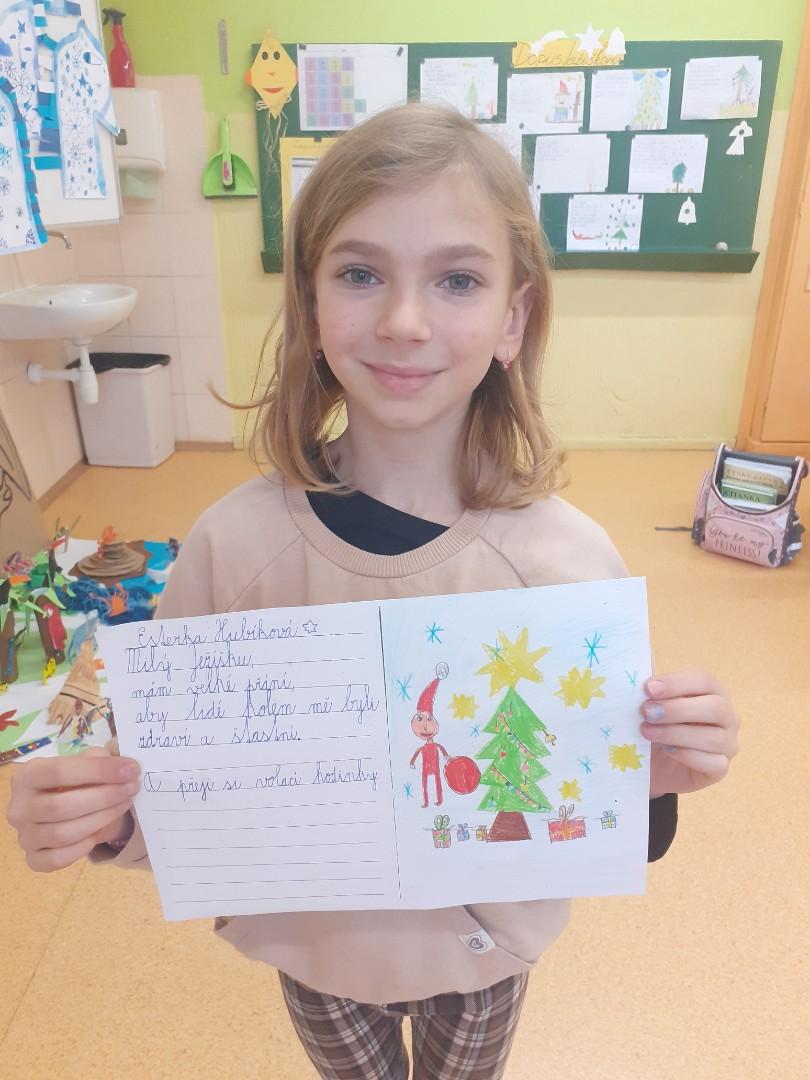 Dopis Ježíškovi
ČÍTANKA
You're my
PRINCESS!
Esterka Hubíková
Milý Ježíšku,
mám velké přání,
aby lidé kolem mě byli
zdraví a šťastní.
A přeji si volací hodinky